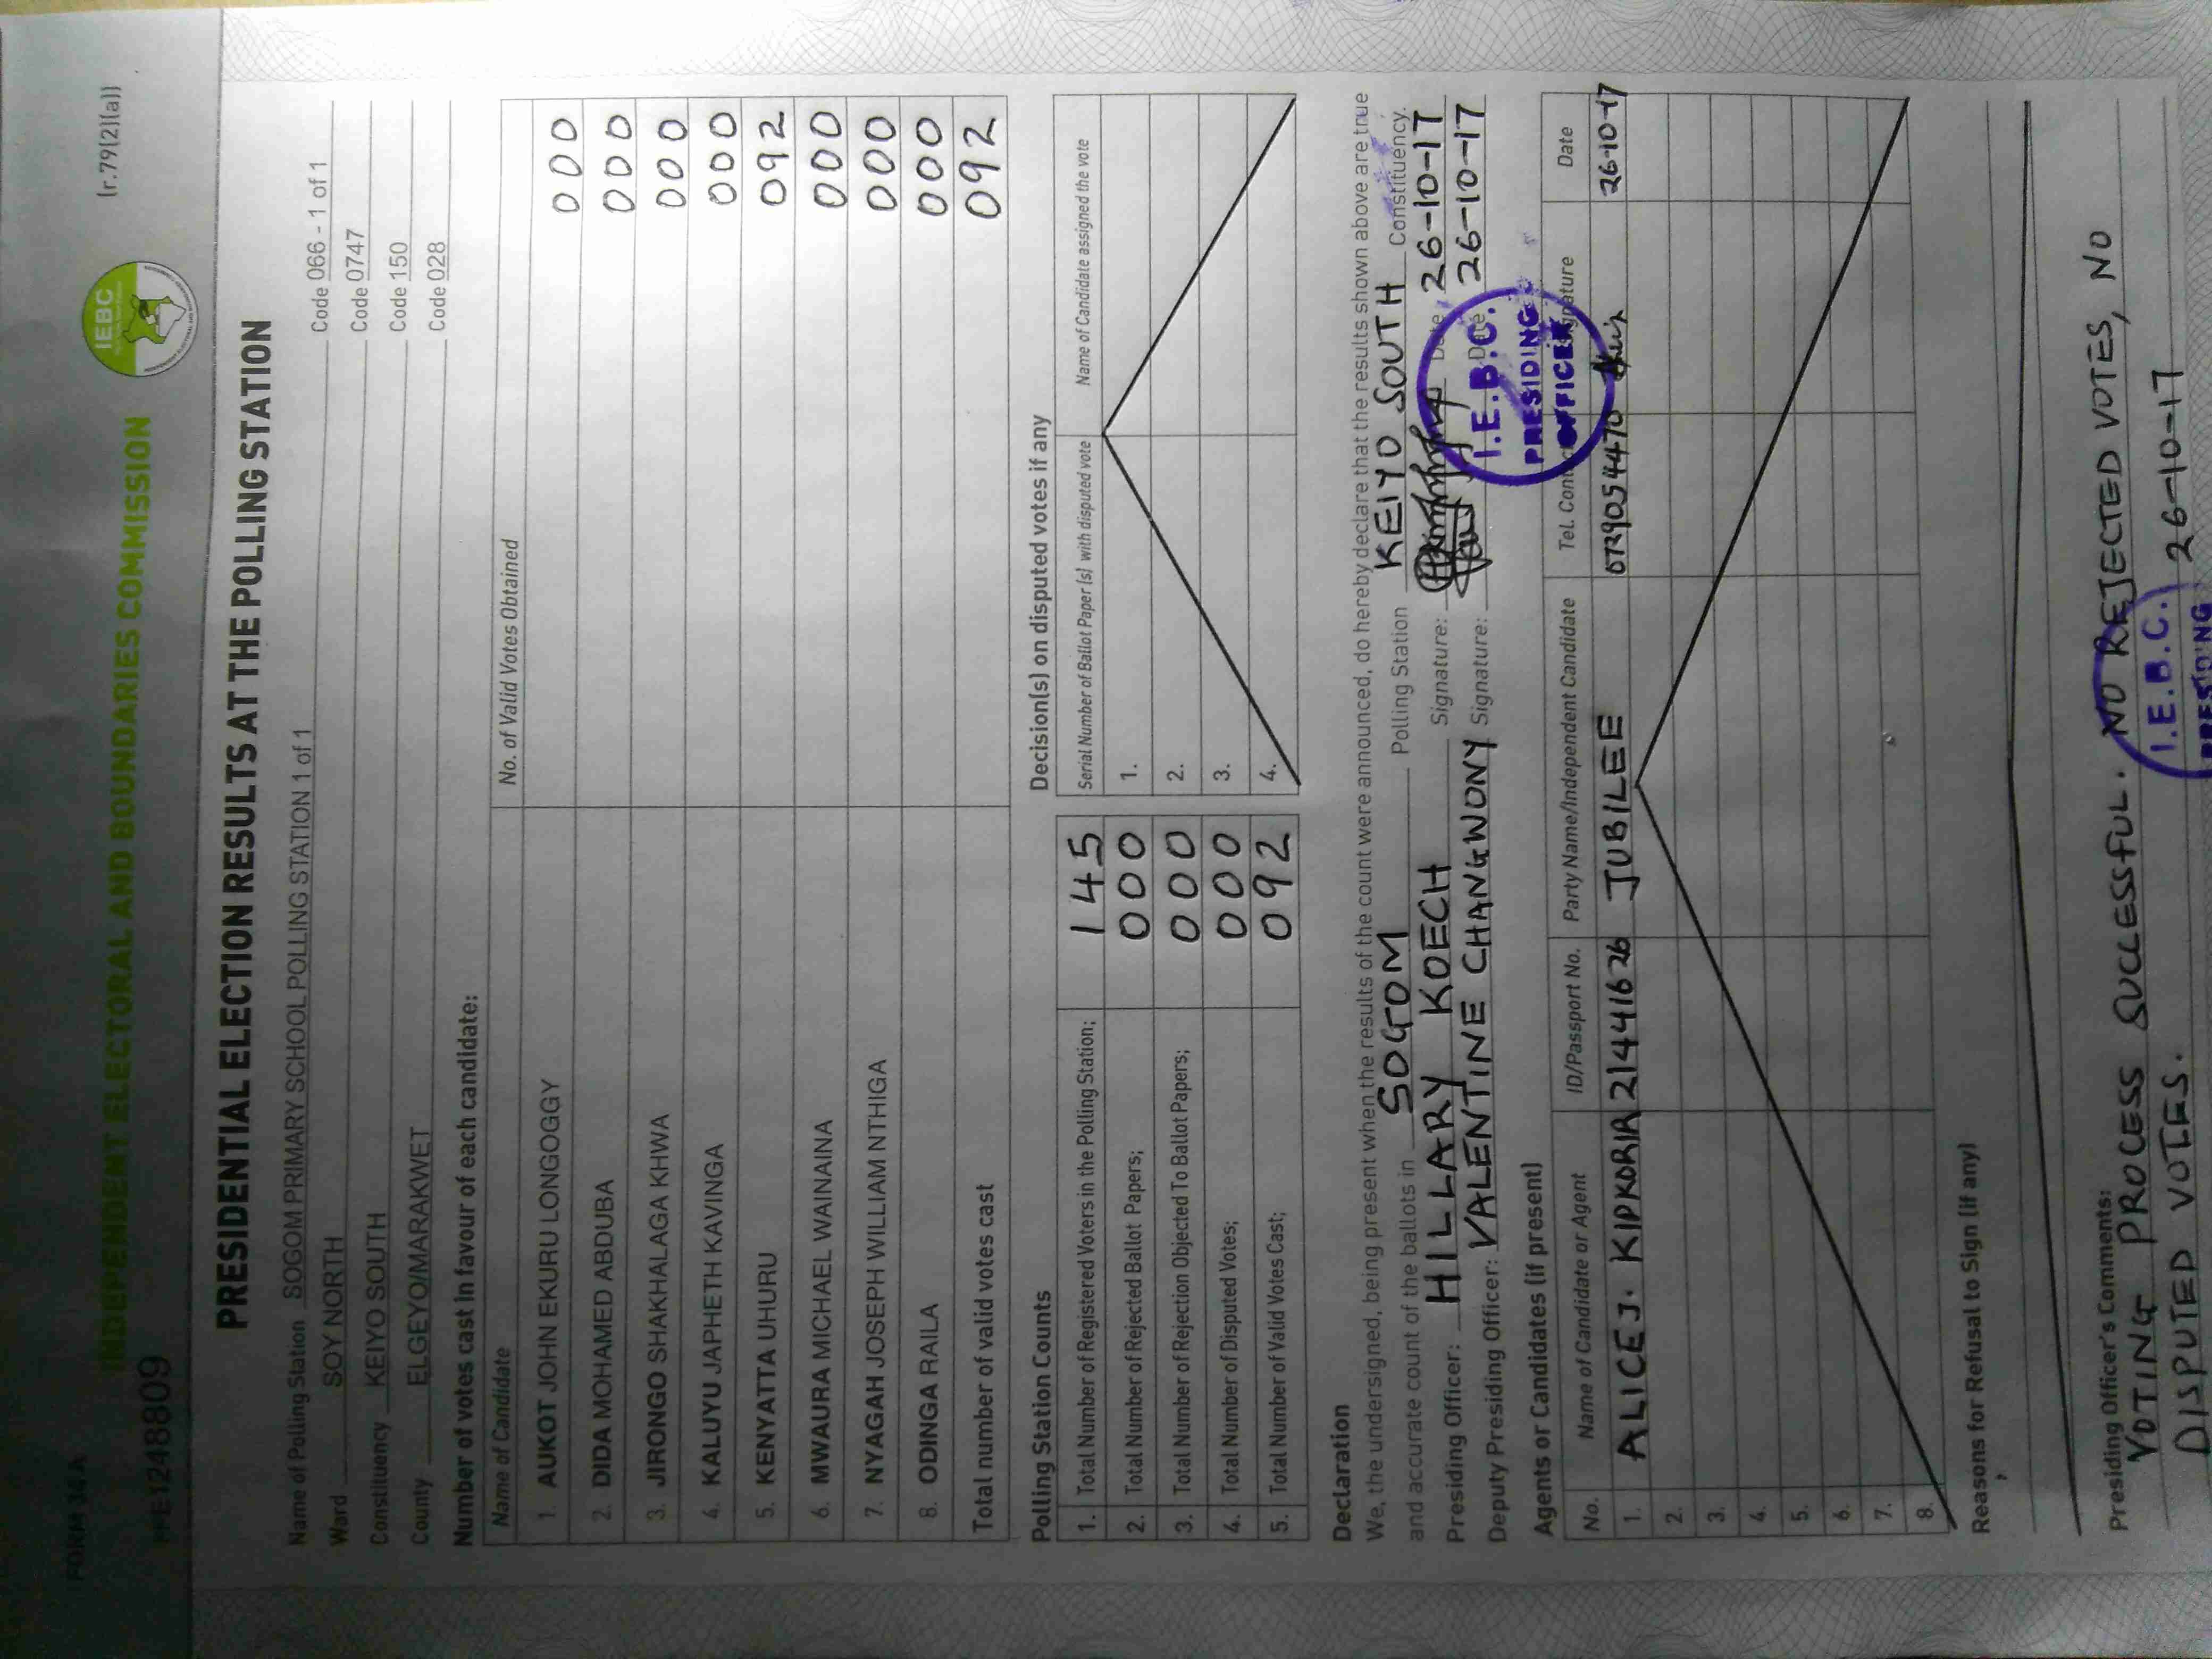 FORM 34A
(r.79(2)(a))
IEBC
INDEPENDENT ELECTORAL AND BOUNDARIES COMMISSION
E1248809
PRESIDENTIAL ELECTION RESULTS AT THE POLLING STATION
Name of Polling Station SOGOM PRIMARY SCHOOL POLLING STATION 1 of 1 Code 066 - 1 of 1
Ward SOY NORTH Code 0747
Constituency KEIYO SOUTH Code 150
County ELGEYO/MARAKWET Code 028
Number of votes cast in favour of each candidate:
Name of Candidate No. of Valid Votes Obtained
1. AUKOT JOHN EKURU LONGOGGY 000
2. DIDA MOHAMED ABDUBA 000
3. JIRONGO SHAKHALAGA KHWA 000
4. KALUYU JAPHETH KAVINGA 000
5. KENYATTA UHURU 092
6. MWAURA MICHAEL WAINAINA 000
7. NYAGAH JOSEPH WILLIAM NTHIGA 000
8. ODINGA RAILA 000
Total number of valid votes cast 092
Polling Station Counts
1. Total Number of Registered Voters in the Polling Station; 145
2. Total Number of Rejected Ballot Papers; 000
3. Total Number of Rejection Objected To Ballot Papers; 000
4. Total Number of Disputed Votes; 000
5. Total Number of Valid Votes Cast; 092
Decision(s) on disputed votes if any
Serial Number of Ballot Paper (s) with disputed vote Name of Candidate assigned the vote
1.
2.
3.
4.
Declaration
We, the undersigned, being present when the results of the count were announced, do hereby declare that the results shown above are true
and accurate count of the ballots in SOGOM Polling Station KEIYO SOUTH Constituency.
Presiding Officer: HILLARY KOECH Signature: Date: 26-10-17
Deputy Presiding Officer: VALENTINE CHANGWONY Signature: Date: 26-10-17
I.E.B.C.
PRESIDING
OFFICER
Agents or Candidates (if present)
No. Name of Candidate or Agent ID/Passport No. Party Name/Independent Candidate Tel. Contact Signature Date
1. ALICE J. KIPKORIR 21441626 JUBILEE 0729054470 26-10-17
2.
3.
4.
5.
6.
7.
8.
Reasons for Refusal to Sign (if any)
Presiding Officer's Comments:
VOTING PROCESS SUCCESSFUL. NO REJECTED VOTES, NO
DISPUTED VOTES. 26-10-17
I.E.B.C.
PRESIDING